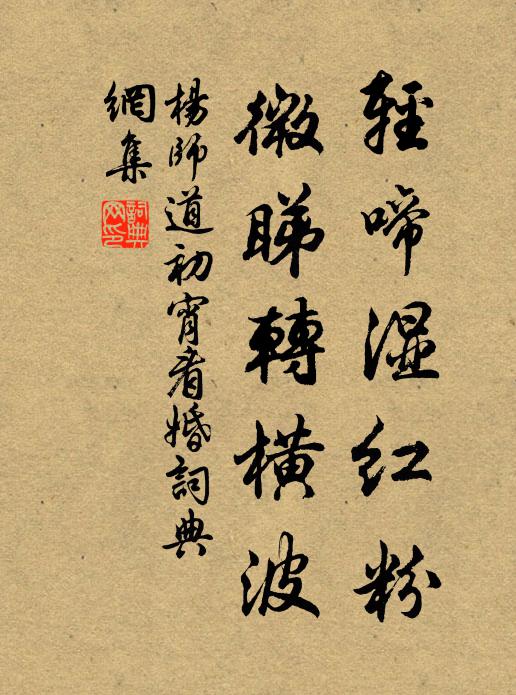 輕啼濕紅粉
微睇轉橫波
楊師道初宵看婚詞典
網集
詞典網印